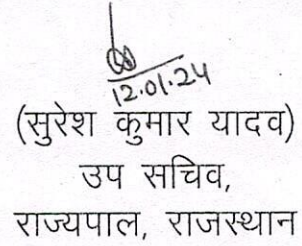 12.01.24
(सुरेश कुमार यादव)
उप सचिव,
राज्यपाल, राजस्थान